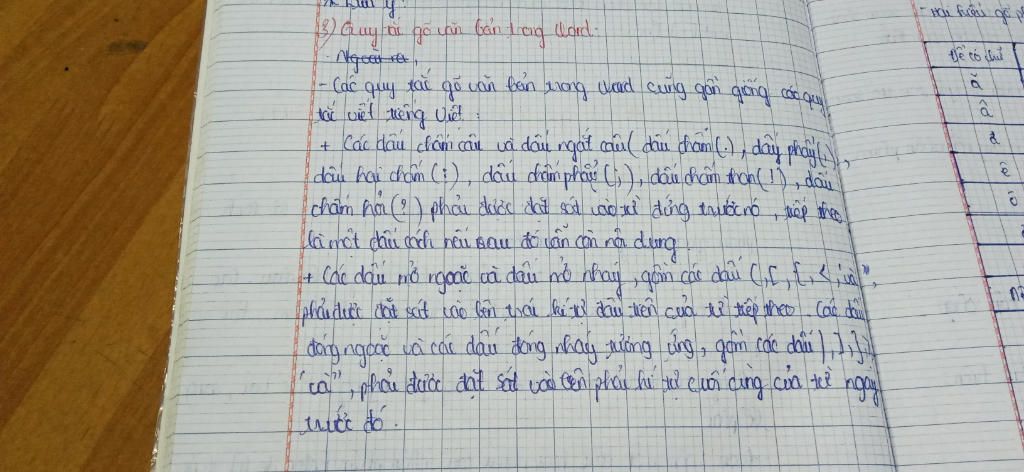 3) Quy tắc gõ văn bản trong Word.
- Ngoài ra,
- Các quy tắc gõ văn bản trong Word cũng gần giống các quy
tắc viết tiếng Việt.
+ Các dấu chấm câu và dấu ngắt câu (dấu chấm(.), dấu phẩy(,),
dấu hai chấm (:), dấu chấm phẩy (;), dấu chấm than(!), dấu
chấm hỏi (?) phải được đặt sát vào từ đứng trước nó, tiếp theo
là một dấu cách nếu sau đó vẫn còn nội dung
+ Các dấu mở ngoặc và dấu mở nháy, gồm các dấu (, [, {, <, ' và "
phải được đặt sát vào bên trái kí tự đầu tiên của từ tiếp theo. Các dấu
đóng ngoặc và các dấu đóng nháy tương ứng, gồm các dấu ), ], },
' và ", phải được đặt sát vào bên phải kí tự cuối cùng của từ ngay
trước đó.
Để có chữ
ă
â
ê
ô